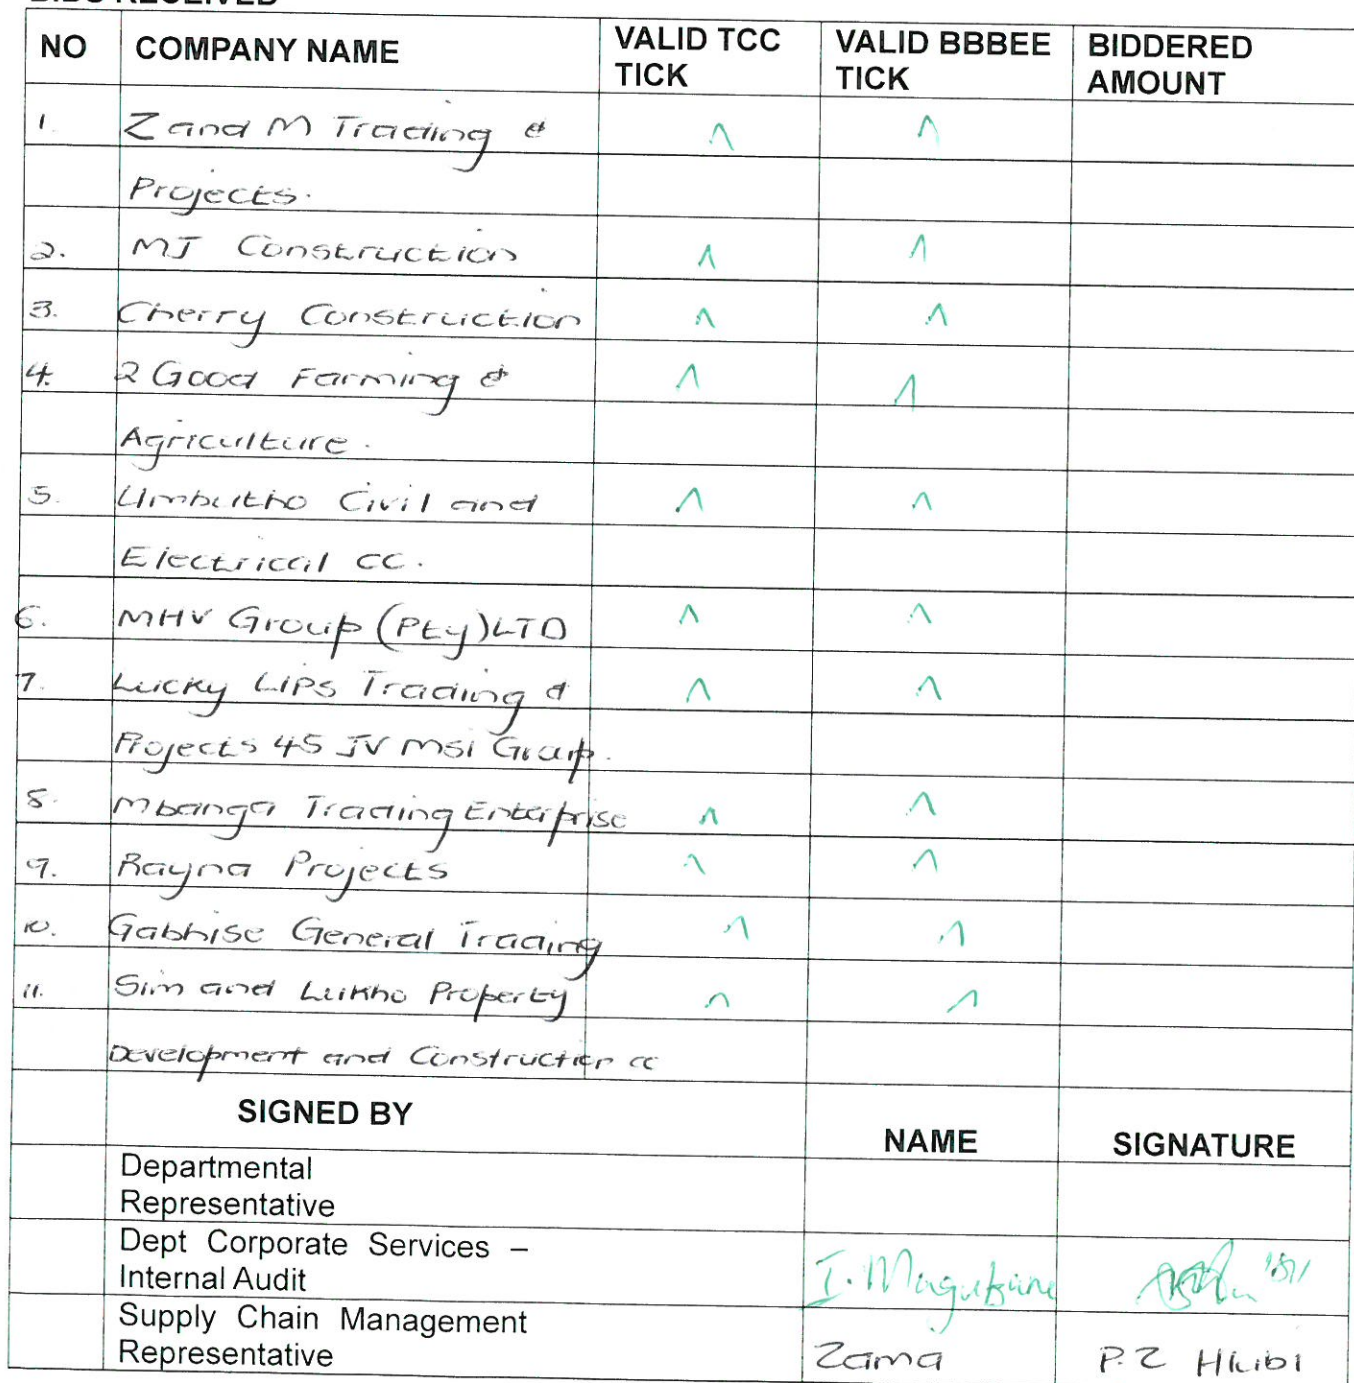 NO COMPANY NAME VALID TCC TICK VALID BBBEE TICK BIDDERED AMOUNT
1. Z and M Trading &
Projects.
2. MJ Construction
3. Cherry Construction
4. 2 Good Farming &
Agriculture.
5. Umbutho Civil and
Electrical cc.
6. MHV Group (Pty) LTD
7. Lucky Lips Trading &
Projects 45 JV MSI Group.
8. Mbanga Trading Enterprise
9. Rayna Projects
10. Gabhise General Trading
11. Sim and Lukho Property
Development and Construction cc
SIGNED BY NAME SIGNATURE
Departmental
Representative
Dept Corporate Services –
Internal Audit I. Magubane
Supply Chain Management
Representative Zama P.Z Hlubi